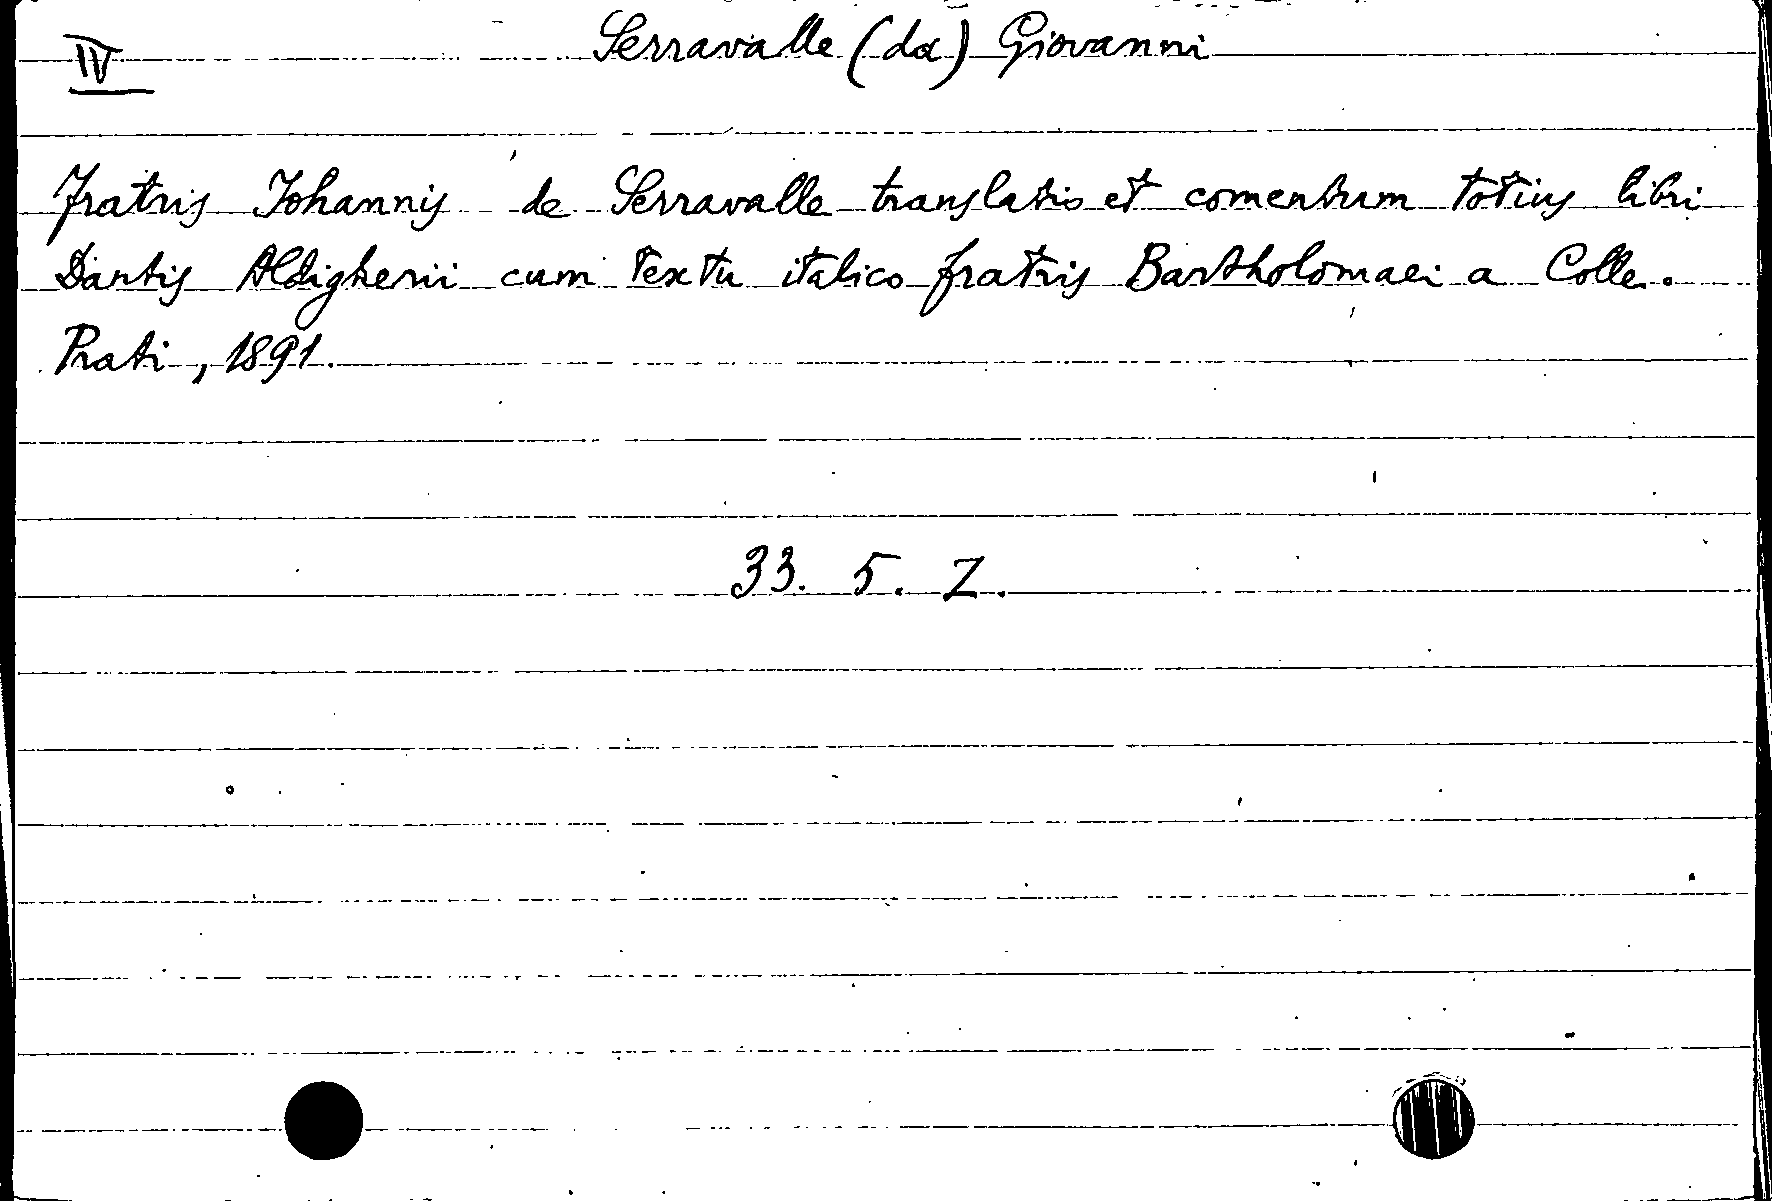 IV
Serravalle (da) Giovanni
Fratris Johannis de Serravalle translatio et comentum totius libri
Dantis Aldigherii cum textu italico fratris Bartholomaei a Colle.
Prati, 1891.
33. 5. Z.